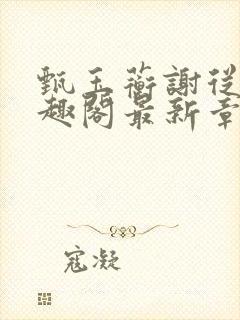 甄玉蘅謝從
趣閣最新章
寇凝